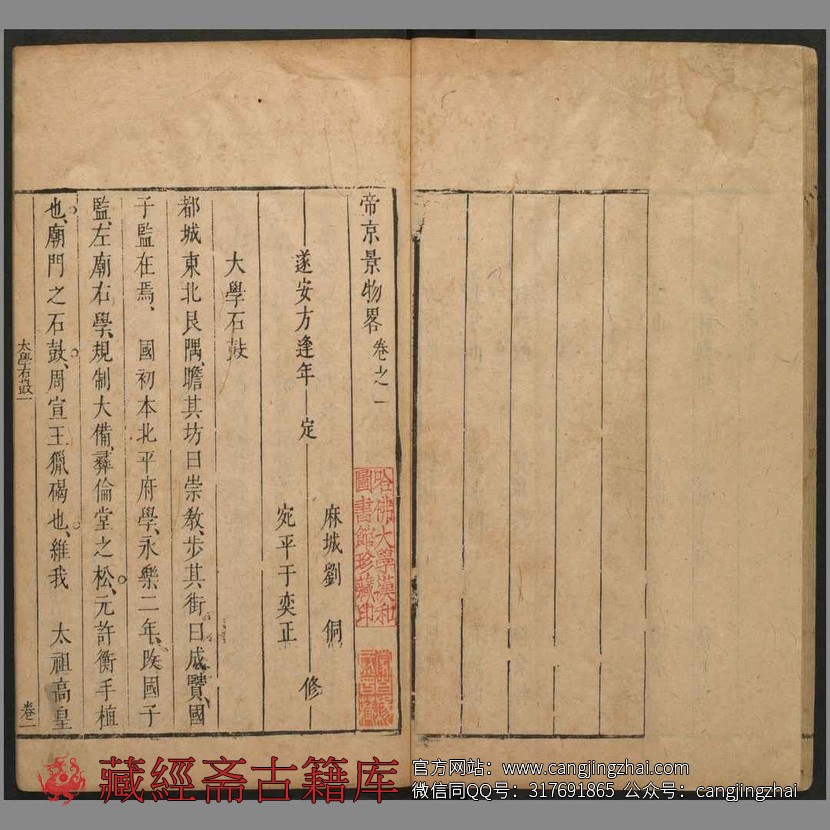 帝京景物畧卷之一
遂安方逢年定
麻城劉侗
宛平于奕正
修
大學石鼓
都城東北艮隅、瞻其坊曰崇敎、步其街曰成賢、國
子監在焉、國初本北平府學、永樂二年、改國子
監、左廟右學、規制大備、彞倫堂之松、元許衡手植
也、廟門之石鼓、周宣王獵碣也、維我 太祖高皇
太學石鼓一
卷一
哈佛大學漢和
圖書館珍藏印
藏經斋古籍库
官方网站：www.cangjingzhai.com
微信同QQ号：317691865 公众号：cangjingzhai